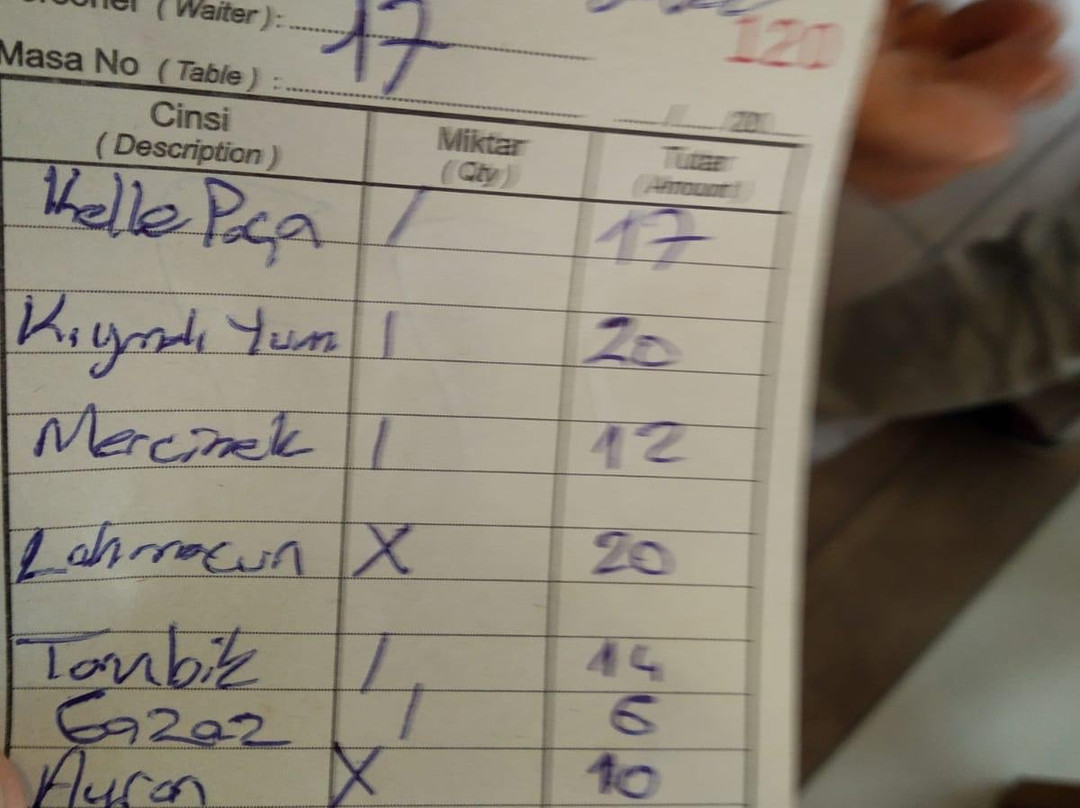 (Waiter):
120
Masa No (Table) : 17
/ /20
Cinsi Miktar Tutar
(Description) (Qty) (Amount)
Kelle Paça / 17
Kıymalı Yum 1 20
Mercimek 1 12
Lahmacun X 20
Tombik / 14
Gazoz / 6
Ayran X 10